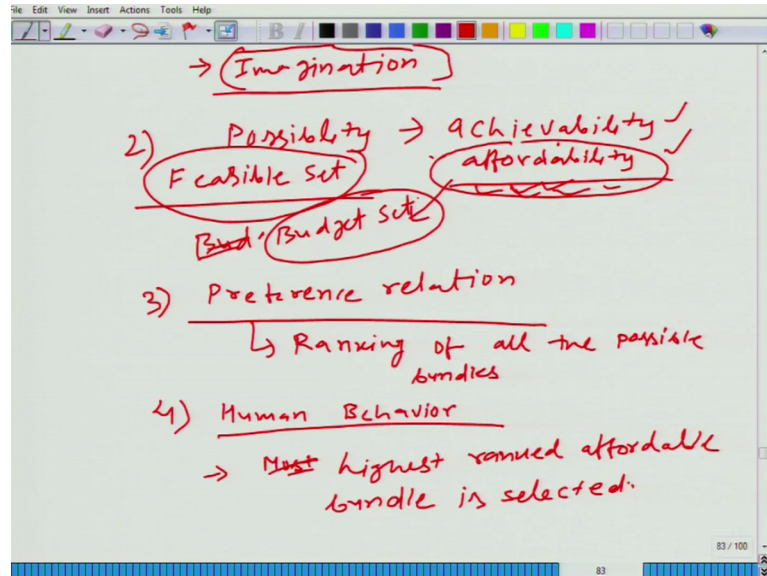 File Edit View Insert Actions Tools Help
→ Imagination
2) Possibility → achievability ✓
Feasible Set affordability ✓
Bud. Budget Set
3) Preference relation
↳ Ranking of all the possible
bundles
4) Human Behavior
→ Most highest ranked affordable
bundle is selected.
83 / 100
83